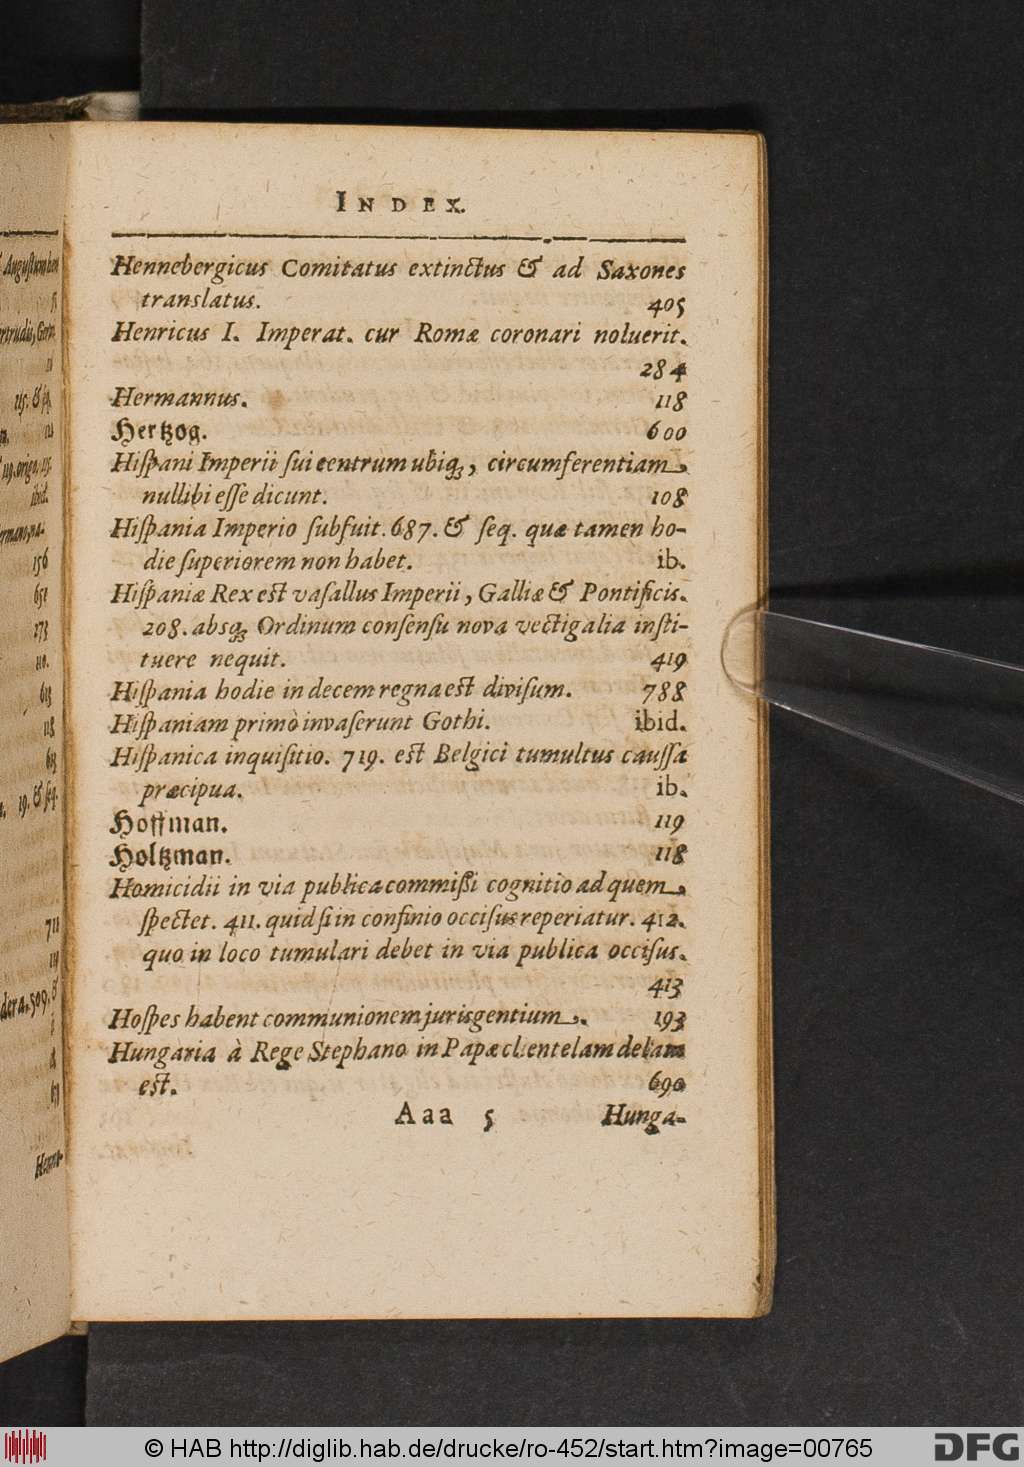 INDEX.
Hennebergicus Comitatus extinctus & ad Saxones
translatus. 405
Henricus I. Imperat. cur Romæ coronari noluerit.
284
Hermannus. 118
Hertzog. 600
Hiſpani Imperii ſui centrum ubiq́;, circumferentiam
nullibi eſſe dicunt. 108
Hiſpania Imperio ſubfuit. 687. & ſeq. quæ tamen ho-
die ſuperiorem non habet. ib.
Hiſpaniæ Rex eſt vaſallus Imperii, Galliæ & Pontificis.
208. absq; Ordinum conſenſu nova vectigalia inſti-
tuere nequit. 419
Hiſpania hodie in decem regna eſt diviſum. 788
Hiſpaniam primò invaſerunt Gothi. ibid.
Hiſpanica inquiſitio. 719. eſt Belgici tumultus cauſſa
præcipua. ib.
Hoffman. 119
Holtzman. 118
Homicidii in via publica commißi cognitio ad quem
ſpectet. 411. quid ſi in confinio occiſus reperiatur. 412.
quo in loco tumulari debet in via publica occiſus.
413
Hoſpes habent communionem juris gentium. 193
Hungaria à Rege Stephano in Papæ clientelam delata
eſt. 690
Aaa 5 Hunga-
Auguſtum
&
156
651
273
110.
613
118
613
19. & ſeq.
711
119
509. &
Henne-
© HAB http://diglib.hab.de/drucke/ro-452/start.htm?image=00765
DFG